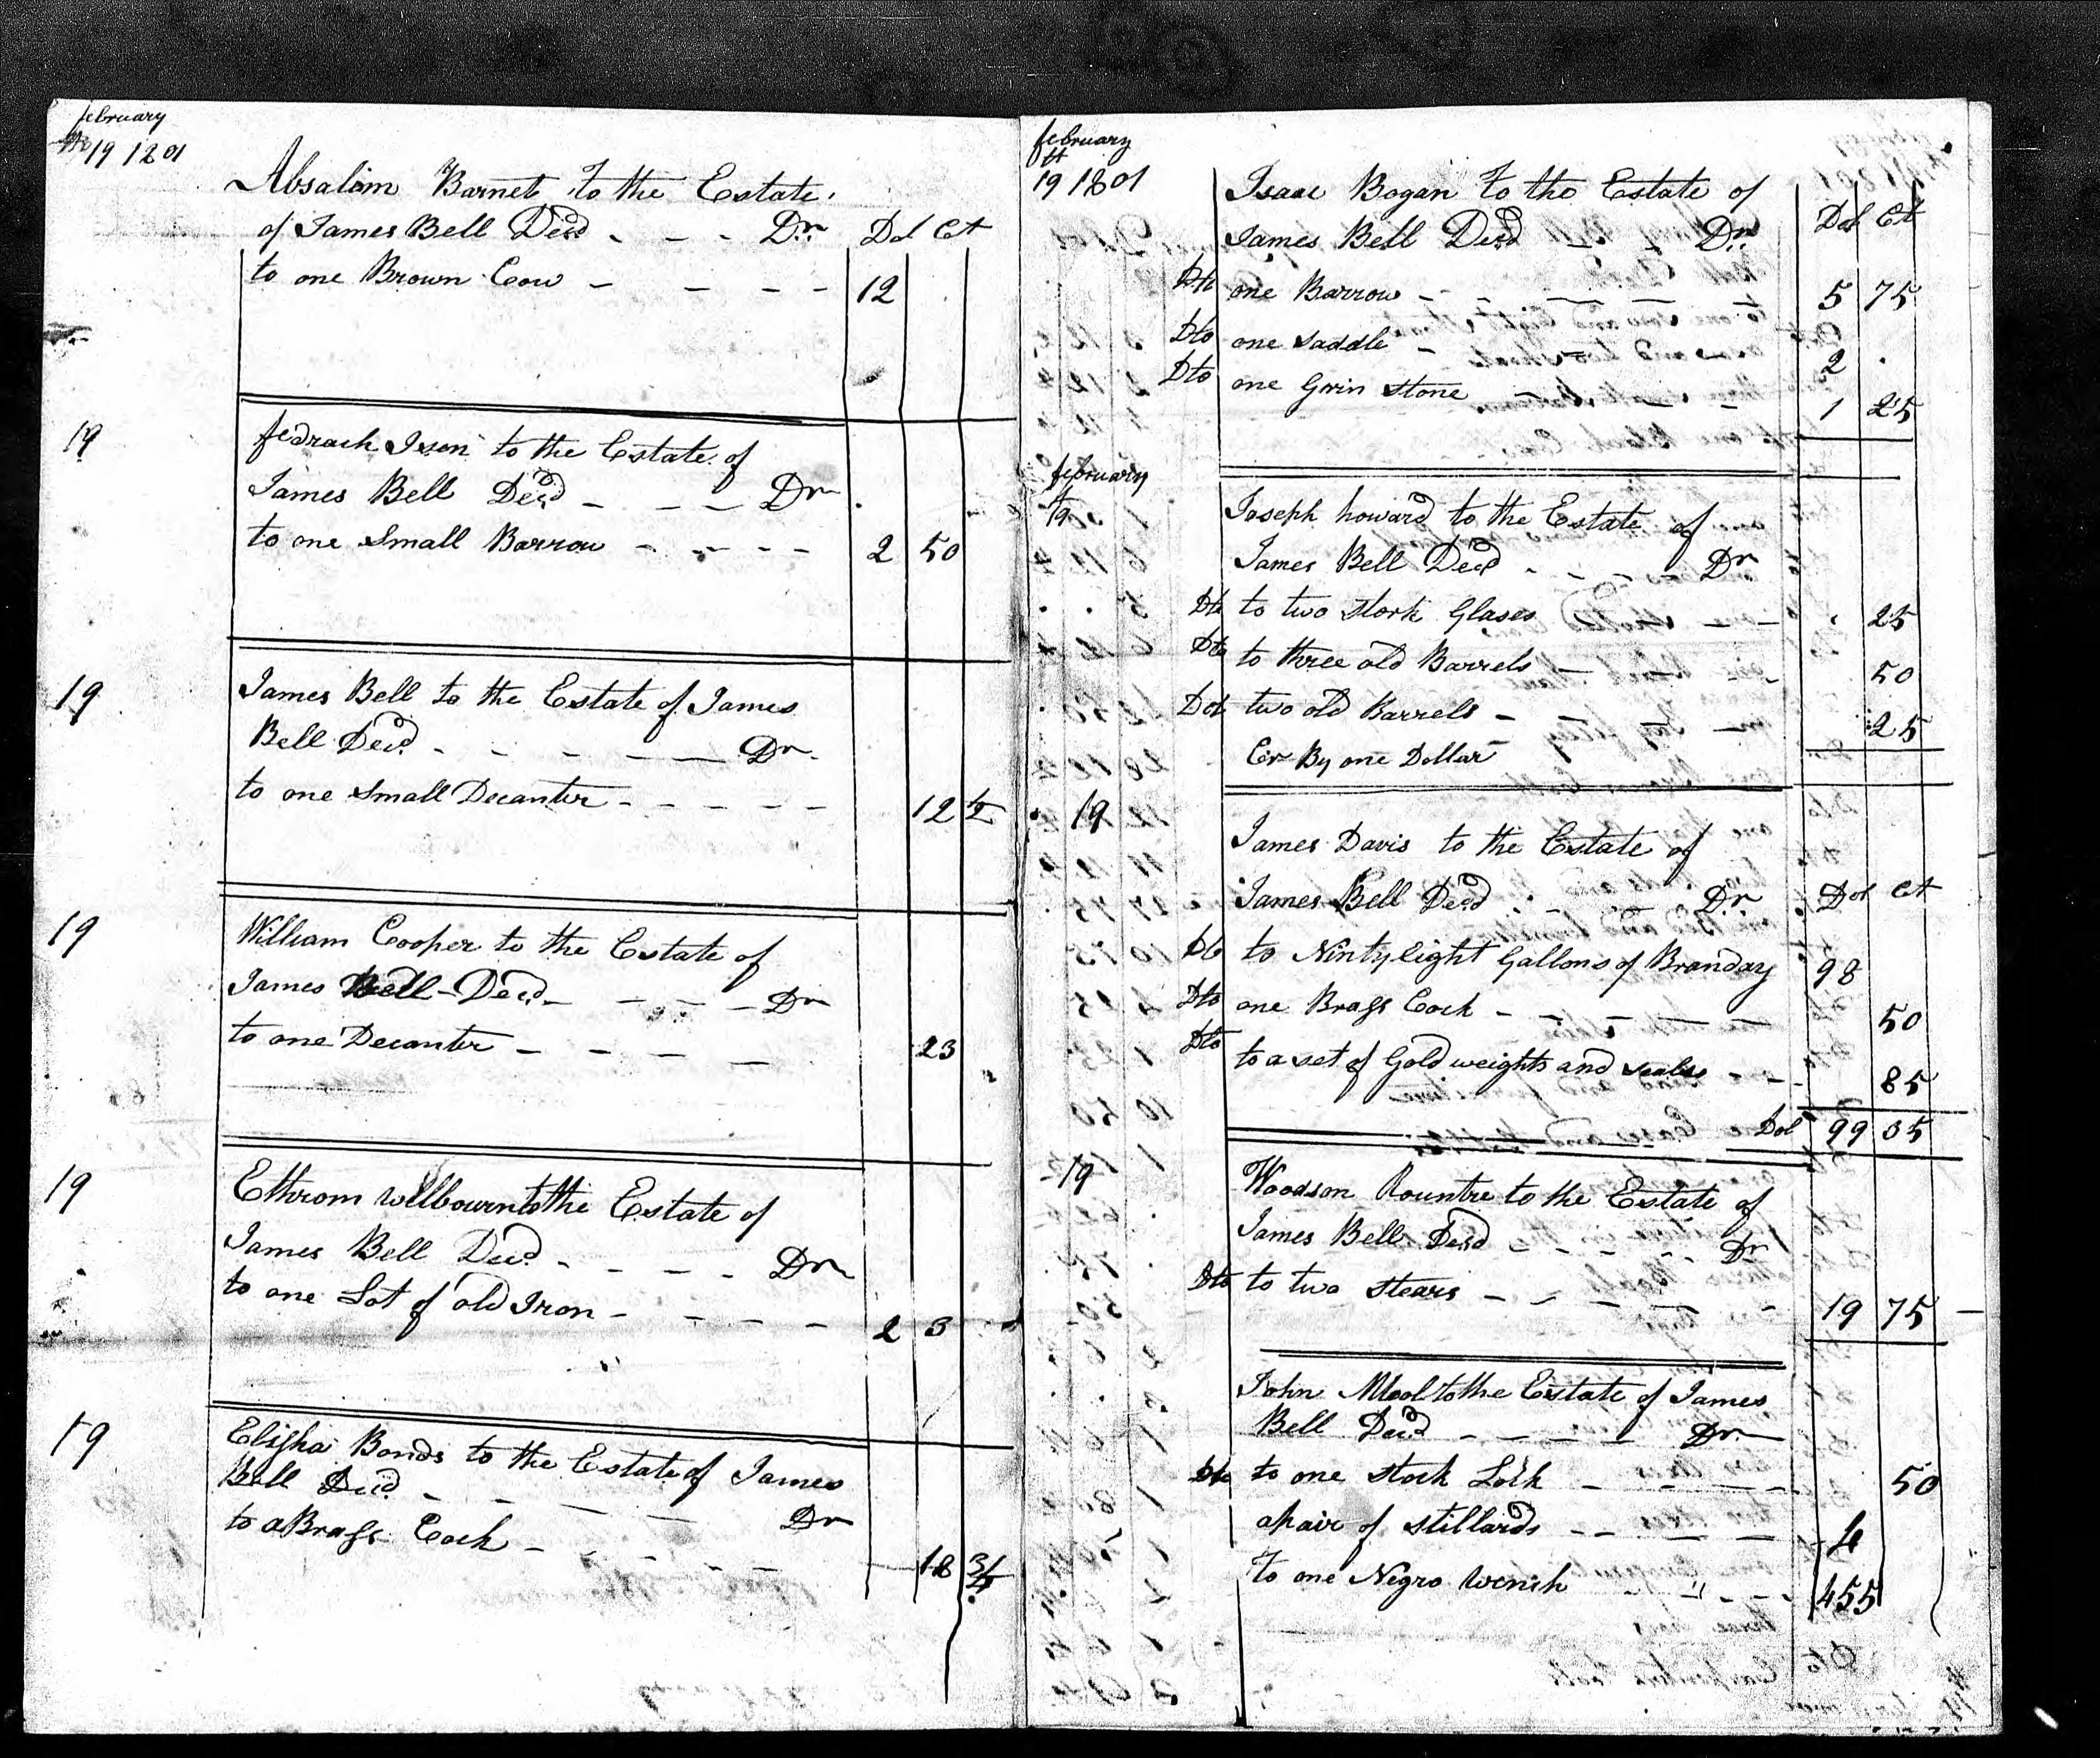 february
19 1801
Absalom Barnet to the Estate
of James Bell Decd - - - Dr Dol Ct
to one Brown Cow - - - - 12
19
Jedrach Ison to the Estate of
James Bell Decd - - - Dr
to one Small Barrow - - - - 2 50
19
James Bell to the Estate of James
Bell Decd - - - - - Dr
to one Small Decanter - - - - - 12 1/2
19
William Cooper to the Estate of
James Bell Decd - - - - Dr
to one Decanter - - - - - 23
19
Ethrom Wellbourn to the Estate of
James Bell Decd - - - - Dr
to one Lot of old Iron - - - - 2 3
19
Elisha Bonds to the Estate of James
Bell Decd - - - - - Dr
to a Brass Cock - - - - - 18 3/4
february
th
19 1801
Isaac Bogan to the Estate of
James Bell Decd - - Dr Dol Ct
Dto one Barrow - - - - - 5 75
Dto one Saddle - 2
Dto one Grin Stone - - - - 1 25
february
19
Joseph howard to the Estate of
James Bell Decd - - - - Dr
Dto to two Glases - - 25
Dto to three old Barrels - - - - 50
Dto two old Barrels - - - 25
Cr By one Dollar
19
James Davis to the Estate of
James Bell Decd - - - Dr Dol Ct
Dto to Ninty Eight Gallons of Branday 98
Dto one Brass Cock - - - - - 50
Dto to a set of Gold weights and scales - - 85
Dol 99 35
19
Woodson Rountre to the Estate of
James Bell Decd - - - - - Dr
Dto to two Stears - - - - - - 19 75
John to the Estate of James
Bell Decd - - - - Dr
Dto to one Stock Lock - - - - 50
a pair of Stillards - - - - 4
To one Negro Wench - - - - 455